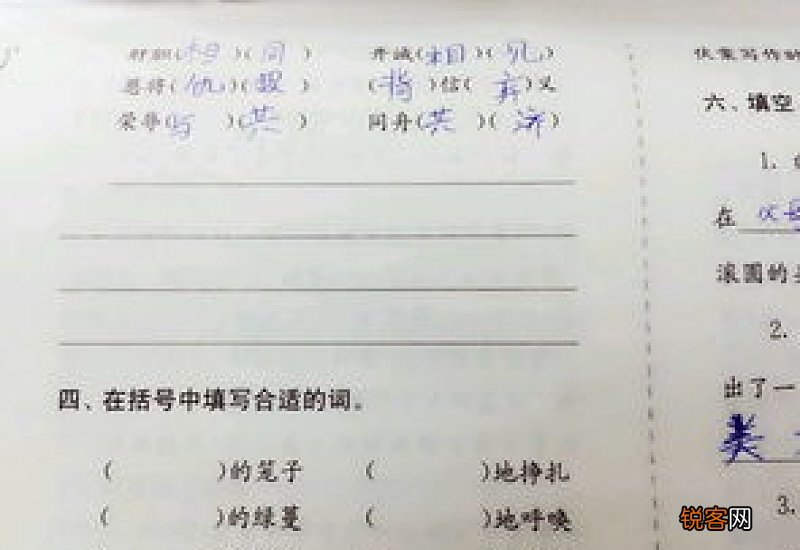 肝胆(相)( ) 开诚(相)(见)
恩将(仇)( ) ( )信(弃)义
荣辱(与)(共) 同舟(共)(济)
四、在括号中填写合适的词。
( )的笼子 ( )地挣扎
( )的绿蔓 ( )地呼唤
伏案写作时
六、填空
1. (
在 父母
滚圆的
2.
出了一
美
3.
锐客网